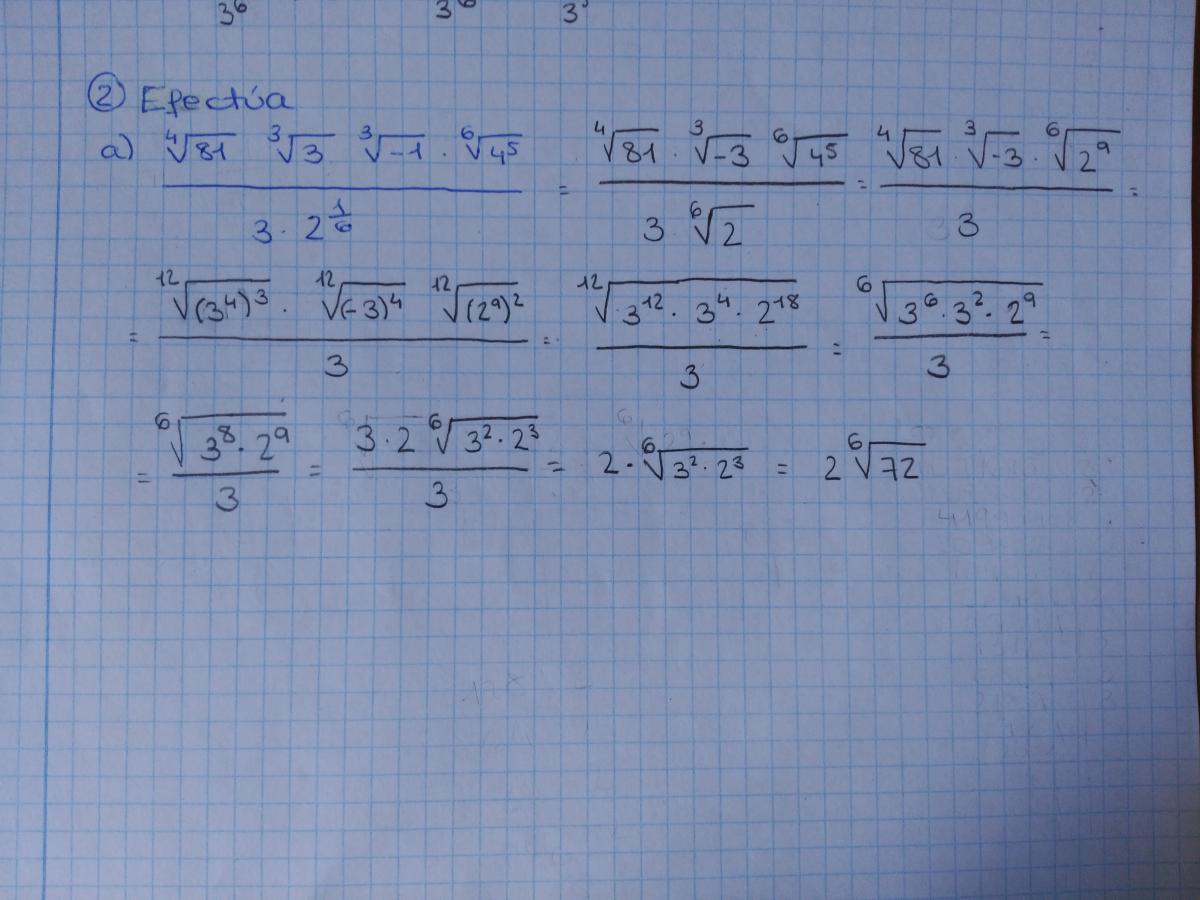 3⁶ 3⁶ 3³
② Efectúa
a) ⁴√81 ³√3 ³√-1 · ⁶√4⁵ / 3 · 2^(1/6) = ⁴√81 · ³√-3 ⁶√4⁵ / 3 ⁶√2 = ⁴√81 · ³√-3 · ⁶√2⁹ / 3 =
= ¹²√(3⁴)³ · ¹²√(-3)⁴ ¹²√(2⁹)² / 3 = ¹²√3¹² · 3⁴ · 2¹⁸ / 3 = ⁶√3⁶ · 3² · 2⁹ / 3 =
= ⁶√3⁸ · 2⁹ / 3 = 3 · 2 ⁶√3² · 2³ / 3 = 2 · ⁶√3² · 2³ = 2 ⁶√72